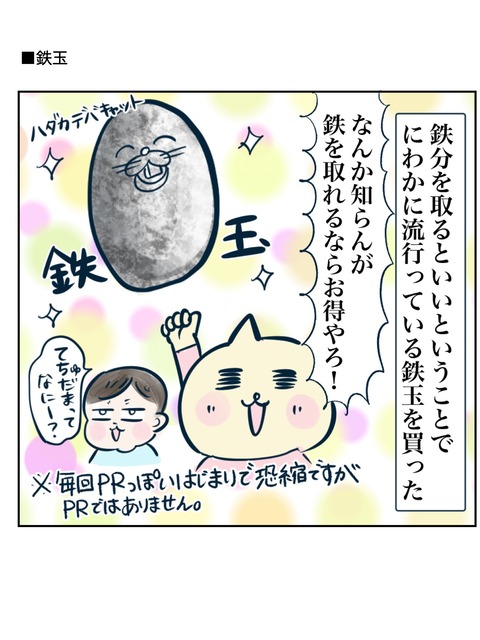 ■鉄玉
鉄分を取るといいということで
にわかに流行っている鉄玉を買った
なんか知らんが
鉄を取れるならお得やろ！
ハダカデバキャット
鉄玉
てちゅだまって
なにー？
※毎回PRっぽいはじまりで恐縮ですが
PRではありません。